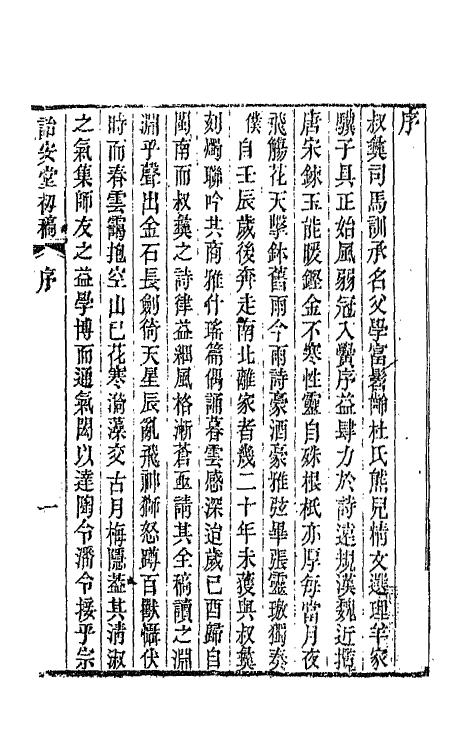 序
叔彝司馬訓承名父學富髫齡杜氏熊兒情文選理羊家
驥子具正始風弱冠入黌序益肆力於詩遠規漢魏近撫
唐宋鍊玉能暖鏗金不寒性靈自殊根柢亦厚每當月夜
飛觴花天擊鉢舊雨今雨詩豪酒豪雅弦畢張靈璈獨奏
僕自壬辰歲後奔走南北離家者幾二十年未獲與叔彝
刻燭聯吟共商雅什瑤篇偶誦暮雲感深迨歲己酉歸自
閩南而叔彝之詩律益細風格漸蒼亟請其全稿讀之淵
淵乎聲出金石長劍倚天星辰亂飛神獅怒蹲百獸懾伏
時而春雲靄抱空山已花寒漪藻交古月梅隱蓋其清淑
之氣集師友之益學博而通氣閎以達陶令潘令接乎宗
詒安堂初稿
序
一